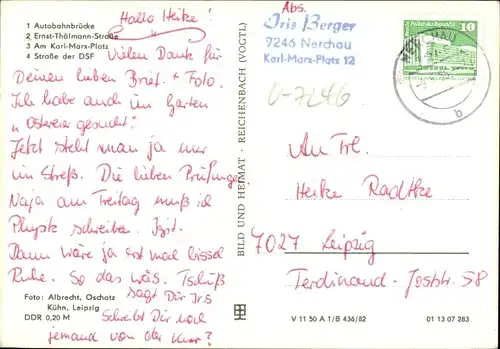 1 Autobahnbrücke
2 Ernst-Thälmann-Straße
3 Am Karl-Marx-Platz
4 Straße der DSF
Hallo Heike!
Vielen Dank für
Deinen lieben Brief. + Foto.
Ich habe auch im Garten
Ostereier gesucht!
Jetzt steht man ja nur
im Streß. Die lieben Prüfungen
Naja am Freitag muß ich
Physik schreiben.
Dann wäre ja erst mal bissel
Ruhe. So das wäs. Tschüß
sagt Dir Iris
Schreibt Dir noch
jemand von der Kur?
Foto: Albrecht, Oschatz
Kühn, Leipzig
DDR 0,20 M
BILD UND HEIMAT · REICHENBACH (VOGTL)
Abs.
Iris Berger
7246 Nerchau
Karl-Marx-Platz 12
O-7246
10
b
An Frl.
Heike Radtke
7027 Leipzig
Ferdinand-Jost-Str. 58
V 11 50 A 1/B 436/82
01 13 07 283